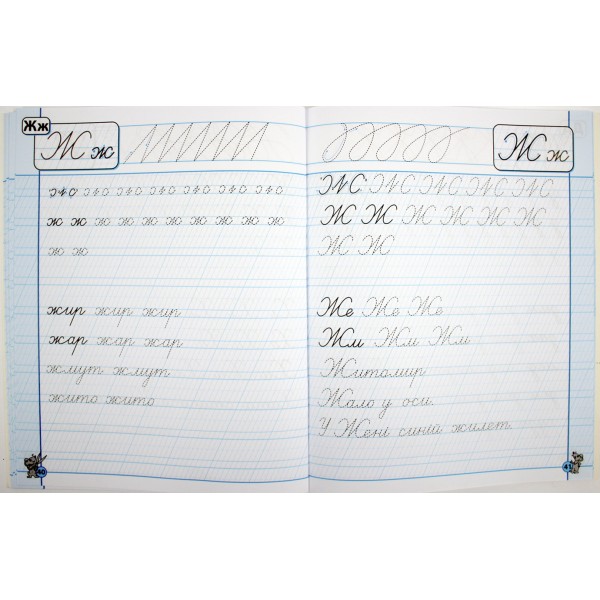 Жж
Ж ж
ж ж ж ж ж ж ж ж ж ж
ж ж
жир жир жир
жар жар жар
жмут жмут
жито жито
40
Ж ж
Ж Ж Ж Ж Ж Ж
Ж Ж
Же Же Же
Жм Жм Жм
Житомир
Жало у оси.
У Жені синій жилет.
41